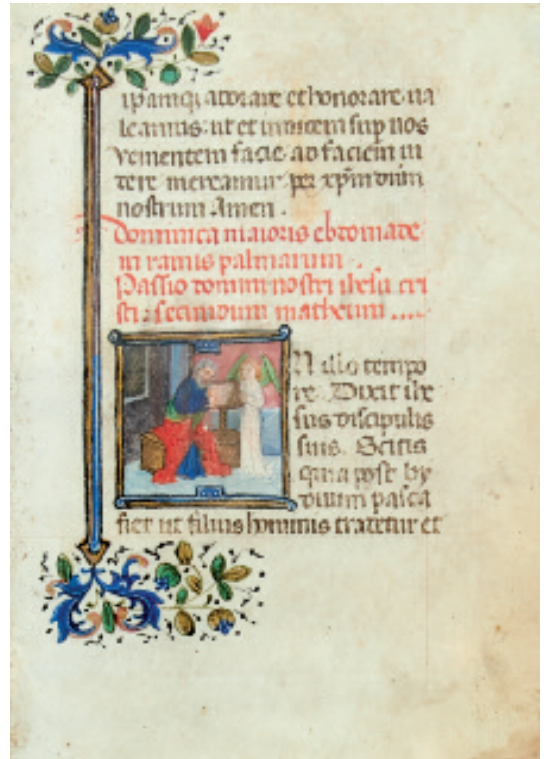 ipamqȝ adorare et honorare ua
leamus. ut et iudicem sup nos
venientem facie ad faciem ui
dere mereamur. per xp̄m dūm
nostrum Amen.
Dominica maioris ebdomade
in ramis palmarum.
Passio domini nostri ihesu cri
sti. secundum matheum....
N illo tempo
re. Dixit ihe
sus discipulis
suis. Scitis
quia post by
duum pasca
fiet ut filius hominis tradetur et